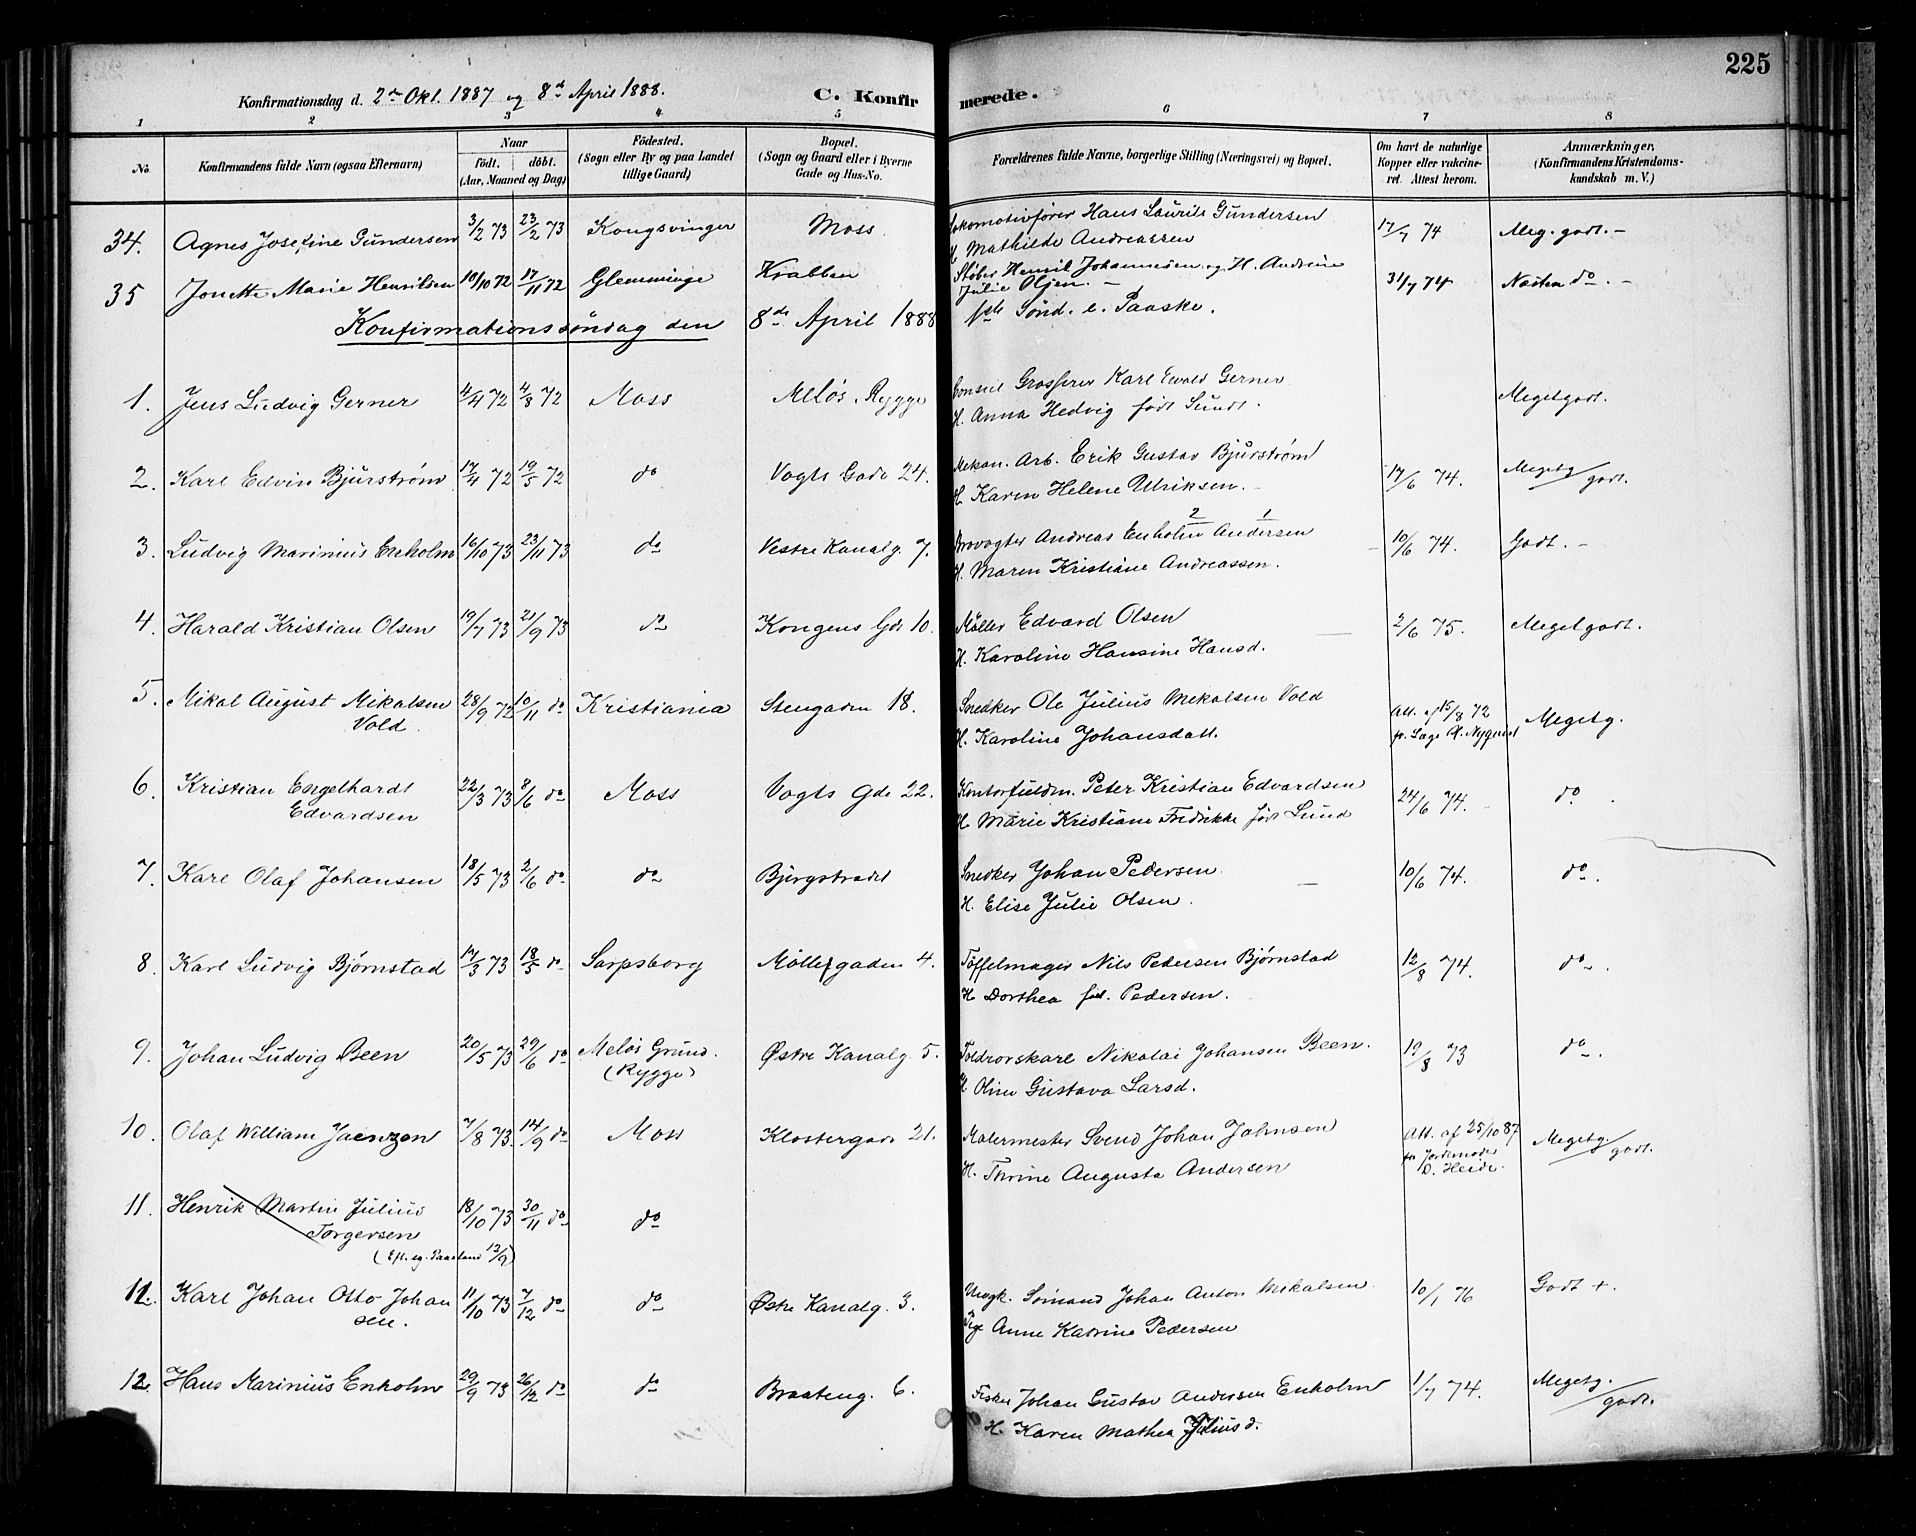 225
Konfirmationsdag d. 2den Okt. 1887 og 8de April 1888.
C. Konfirmerede.
1 2 3 4 5 6 7 8
No. Konfirmandens fulde Navn (ogsaa Efternavn) Naar födt. döbt. (Aar, Maaned og Dag) Födested. (Sogn eller By og paa Landet tillige Gaard) Bopæl. (Sogn og Gaard eller i Byerne Gade og Hus-No. Forældrenes fulde Navne, borgerlige Stilling (Næringsvei) og Bopæl. Om havt de naturlige Kopper eller vaccineret. Attest herom. Anmærkninger. (Konfirmandens Kristendomskundskab m. V.)
34. Agnes Josefine Gundersen 3/2 73 23/2 73 Kongsvinger Moss Lokomotivfører Hans Laurits Gundersen 17/7 74 Meg. godt. –
H Mathilde Andreassen
35 Jonette Marie Henriksen 10/10 72 17/11 72 Glemminge Krabben Støber Henrik Johannesen og H. Andrine 31/7 74 Næsten do. –
Julie Olsen. –
Konfirmationssøndag den 8de April 1888 1ste Sönd. e. Paaske.
1. Jens Ludvig Gerner 4/4 72 4/8 72 Moss Meløs, Rygge Consul Grosserer Karl Ewald Gerner Megetgodt.
H. Anna Hedvig født Sundt.
2. Karl Edvin Bjurstrøm 17/4 72 19/5 72 do Vogts Gade 24. Mekan. Arb. Erik Gustav Bjurstrøm 17/6 74. Megetg/godt.
H Karen Helene Ulriksen. –
3. Ludvig Marinius Enholm 16/10 73 23/11 73 do Vestre Kanalg. 7. Brovogter Andreas Enholm 2 Andersen 1 10/6 74. Godt. –
H. Maren Kristiane Andreassen.
4. Harald Kristian Olsen 19/7 73 21/9 73 do Kongens Gde 10. Møller Edvard Olsen 2/6 75. Megetgodt.
H. Karoline Hansine Hansd.
5. Mikal August Mikalsen Vold 28/9 72 10/11 do Kristiania Stengaden 18. Snedker Ole Julius Mekalsen Vold Att. af 15/8 72 Megetg.
H. Karoline Johansdatt. fr. Læge
6. Kristian Engelhardt Edvardsen 22/3 73 8/6 do Moss Vogts Gde 22. Kontorfuldm. Peter Kristian Edvardsen 24/6 74. do
H Marie Kristiane Fredrikke født Lund
7. Karl Olaf Johansen 18/5 73 2/6 do do Bjergstrædet Snedker Johan Pedersen 10/6 74. do.
H. Elise Julie Olsen.
8. Karl Ludvig Bjørnstad 17/3 73 18/5 do Sarpsborg Möllergaden 4. Töffelmager Nils Pedersen Bjørnstad 12/8 74. do.
H Dorthea fød. Pedersen.
9. Johan Ludvig Been 20/5 73 29/6 do Meløs Grund. (Rygge) Østre Kanalg. 5. Toldrorskarl Nikolai Johansen Been. 19/8 73 do.
H Oline Gustava Larsd.
10. Olaf William Jaenzon 7/8 73. 14/9 do Moss Klostergade 21. Malermester Svend Johan Johnsen Att. af 25/10 87 Megetg./godt.
H. Thrine Augusta Andersen fr. Jordemoder D. Heide.
11. Henrik Martin Julius Torgersen 18/10 73 30/11 do do
(Eft. eg. Paastand 12/9)
11. Karl Johan Otto Johansen. 11/10 73 7/12 do do Østre Kanalg. 3. Ungk. Sømand Johan Anton Mikalsen 10/1 76 Godt +.
Pige Anne Katrine Pedersen
12. Hans Marinius Enholm 29/9 73 26/12 do do Braateng. 6. Fisker Johan Gustav Andersen Enholm 1/7 74. Megetg./godt.
H. Karen Mathea Juliusd.